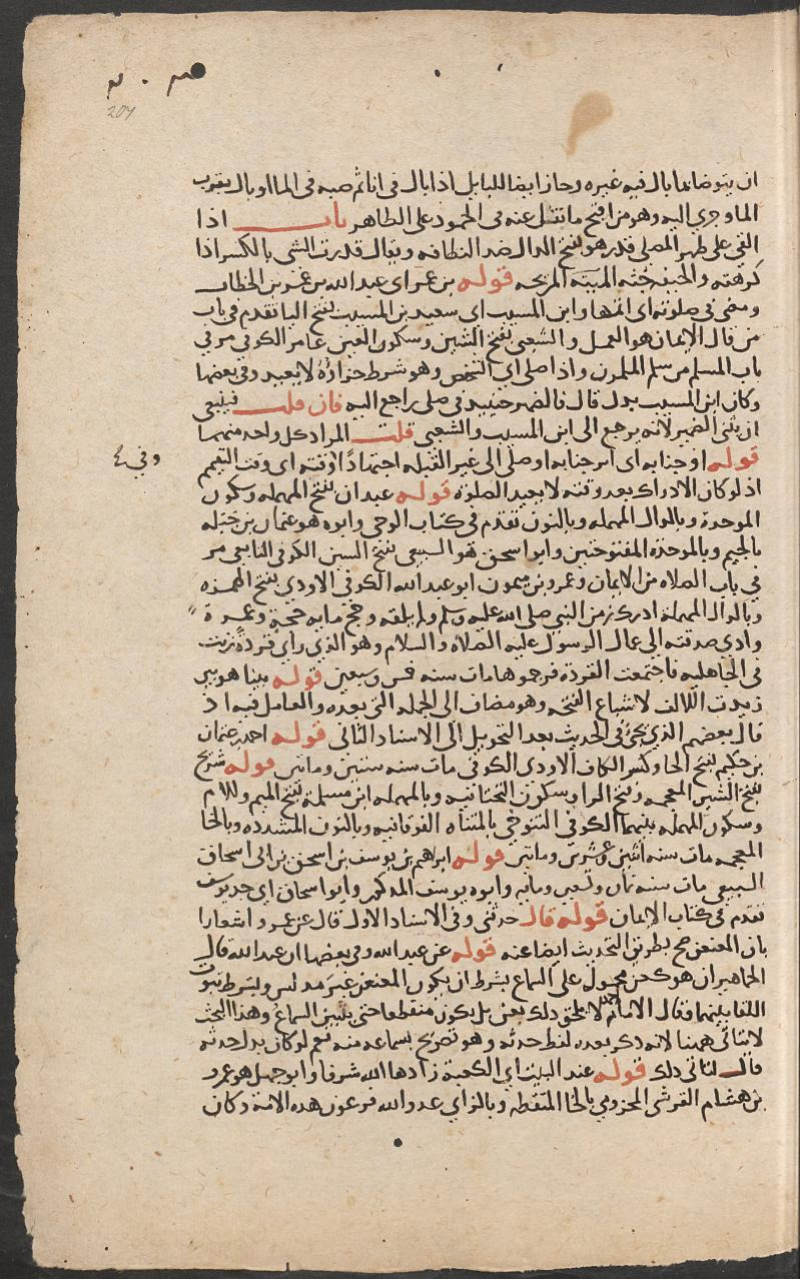 204
ان يتوضا بما بال فيه غيره وجاز ايضا للبايل اذا بال فى اناثم صبه فى الما او بال بقرب
الما وجرى اليه وهو من اقبح ما نقل عنه فى الجمود على الظاهر باب اذا
القى على ظهر المصلى قذر هو بفتح الدال ضد النظافه ويقال قذرت الشى بالكسر اذا
كرهته والجيفه جثه الميته المريحه قوله بن عمر اى عبد الله بن عمر بن الخطاب
ومضى فى صلوته اى اتمها وابن المسيب اى سعيد بن المسيب بفتح اليا تقدم فى باب
من قال الايمان هو العمل والشعبى بفتح الشين وسكون العين عامر الكوفى مر فى
باب المسلم من سلم المسلمون واذا صلى اى الشخص وهو شرط جزاؤه لا يعيد وفى بعضها
وكان ابن المسيب بدل قال فالضمير حينئذ فى صلى راجع اليه فان قلت فينبغى
ان يثنى الضمير لانه يرجع الى ابن المسيب والشعبى قلت المراد كل واحد منهما
قوله او جنابه اى اثر جنابه او صلى الى غير القبله اجتهادًا او قته اى وقت التيمم
وفى
اذ لو كان الادراك بعد وقته لا يعيد الصلوة قوله عبدان بفتح المهمله وسكون
الموحدة وبالدال المهمله وبالنون تقدم فى كتاب الوحى وابوه هو عثمان بن جبله
بالجيم وبالموحدة المفتوحتين وابو اسحق هو السبيعى بفتح السين الكوفى التابعى مر
فى باب الصلاه من الايمان وعمرو بن ميمون ابو عبد الله الكوفى الاودى بفتح الهمزه
وبالدال المهملة ادرك زمن النبى صلى الله عليه وسلم ولم يلقه وحج مايه حجة وعمرة
وادى صدقته الى عمال الرسول عليه الصلاه والسلام وهو الذى راى قردة زنت
فى الجاهليه فاجتمعت القردة فرجموها مات سنه خمس وسبعين قوله بينا هو بين
زيدت الالف لاشباع الفتحه وهو مضاف الى الجمله التى بعده والعامل فيه اذ
قال بعضهم الذى يجئ فى الحديث بعد التحويل الى الاسناد الثانى قوله احمد بن عثمان
بن حكيم بفتح الحا وكسر الكاف الاودى الكوفى مات سنه ستين وماتين قوله شريح
بفتح الشين المعجمه وفتح الرا وسكون التحتانيه وبالمهمله ابن مسلمة بفتح الميم واللام
وسكون المهمله بينهما الكوفى التنوخى بالمثناه الفوقانيه وبالنون المشدده وبالخا
المعجمه مات سنه اثنين وعشرين وماتين قوله ابرهيم بن يوسف بن اسحق بن ابى اسحاق
السبيعى مات سنه ثمان وتسعين ومايه وابوه يوسف المذكور وابو اسحاق اى جد يوسف
تقدم فى كتاب الايمان قوله قال حدثنى وفى الاسناد الاول قال عن عمرو اشعارا
بان المعنعن صح بطريق التحديث ايضا عنه قوله عن عبد الله وفى بعضها ان عبد الله قال
الجماهير ان هو كعن محمول على السماع بشرط ان يكون المعنعن غير مدلس وبشرط ثبوت
اللقا بينهما فقال الامام احمد لا يلحق ذلك بعن بل يكون منقطعا حتى يتبين السماع وهذا البحث
لا يتاتى ههنا لانه ذكر بعده لفظ حدثه وهو تصريح بسماعه منه نعم لو كان بدل حدثه
قال لتاتى ذلك قوله عند البيت اى الكعبة زادها الله شرفا وابو جهل هو عمرو
بن هشام القرشى المخزومى بالخا المنقطه وبالزاى عدو الله فرعون هذه الامة وكان